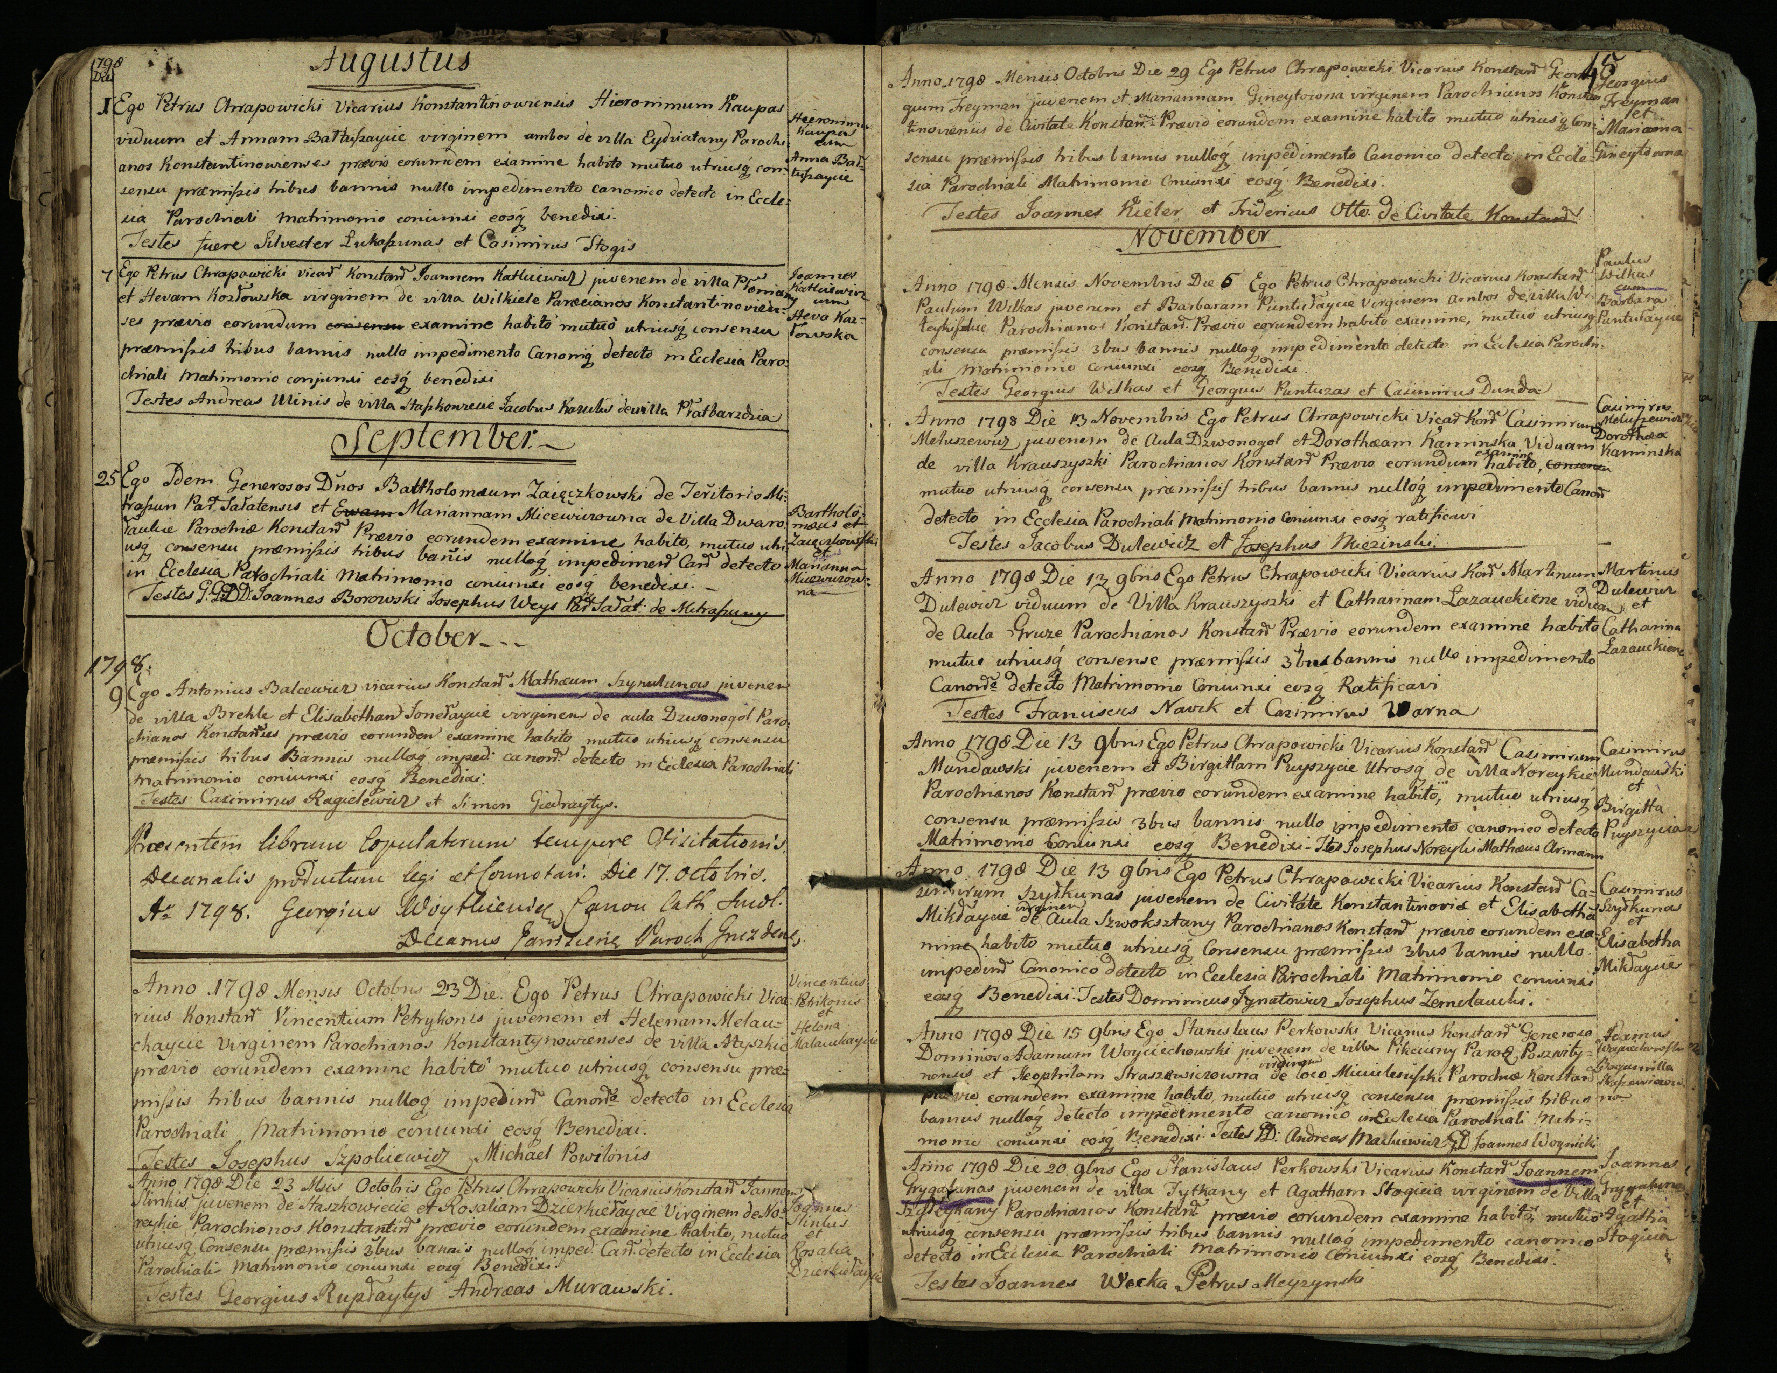 1798
Die
Augustus
1 Ego Petrus Chrapowicki Vicarius Konstantinoviensis Hieronimum Kaupas
viduum et Annam virginem ambos de villa Eydziatany Parochi-
anos Konstantinowienses prævio eorundem examine habito mutuo utriusq con-
sensu præmissis tribus bannis nullo impedimento canonico detecto in Eccle-
sia Parochiali Matrimonio coniunxi eosq benedixi.
Testes fuere Silvester Lukoszunas et Casimirus Stogis
Hieronimus
Kaupas
cum
Anna Bal-
7 Ego Petrus Chrapowicki Vicar Konstan Joannem Katlucewicz juvenem de villa
et Hevam Kozłowska virginem de villa Wilkiele Parocianos Konstantinovien-
ses prævio eorundum consensu examine habito mutuo utriusq consensu
præmissis tribus bannis nullo impedimento Canoniq detecto in Ecclesia Paro-
chiali Matrimonio conjunxi eosq benedixi
Testes Andreas Minis de villa Jacobus de villa
Joannes
Katlucewicz
cum
Heva Koz-
łowska
September
25 Ego Idem Generosos Dños Bartholomæum Zaięczkowski de Territorio Mi-
traszun Par Sałatensis et Ewam Mariannam Micewiczowna de Villa Dwaro-
Parochiæ Konstan Prævio eorundem examine habito, mutuo utri-
usq consensu præmissis tribus bañis nulloq impedimen Can detecto
in Ecclesia Parochiali Matrimonio coniunxi eosq benedixi
Testes G.G.D.D. Joannes Borowski Josephus Weys Sałat: de Mitraszuny
Bartholo-
mæus et
Zaięczkowski
et
Marianna
Micewiczow-
na
October
1798.
9 Ego Antonius Balcewicz vicarius Konstan Mathæum Szyrulunas juvenem
de villa Brehle et Elisabetham virginem de aula Dzwonogol Paro-
chianos prævio eorundem examine habito mutuo utriusq consensu
præmissis tribus Bannis nulloq imped: canon: detecto in Ecclesia Parochiali
Matrimonio coniunxi eosq Benedixi.
Testes Casimirus Ragielewicz et Simon Giedraytys.
Præsentem librum Copulatorum tempore Visitationis
Decanalis productum legi et Connotavi. Die 17. octobris.
Ao 1798. Georgius Woytkiewicz Canon Cath
Decanus Paroch
Anno 1798 Mensis Octobris 23 Die. Ego Petrus Chrapowicki Vica-
rius Konstan Vincentium Petrykonis juvenem et Helenam Melau-
chaycie Virginem Parochianos Konstantynowienses de villa Atyszkie
prævio eorundem examine habito mutuo utriusq consensu præ-
missis tribus bannis nulloq impedim Canon detecto in Ecclesia
Parochiali Matrimonio coniunxi eosq Benedixi.
Testes Josephus Szpolucewicz Michael Powilonis
Vincentius
et
Helena
Anno 1798 Die 23 Msis Octobris Ego Petrus Chrapowicki Vicarius Konstan Joannem
juvenem de Staszkowiecie et Rosaliam Dzierkiełaycie Virginem de No-
reykie Parochianos Konstantin prævio eorundem examine habito, mutuo
utriusq Consensu præmissis 3bus bannis nulloq imped: Can: detecto in Ecclesia
Parochiali Matrimonio coniunxi eosq Benedixi.
Testes Georgius Rupłaytys Andreas Murawski.
Joannes
et
Rosalia
15
Anno 1798 Mensis Octobris Die 29 Ego Petrus Chrapowicki Vicarius Konstan Geor-
gium Freyman juvenem et Mariannam Gineytowna virginem Parochianos Konstan-
tinoviensis de Civitate Konstan: Prævio eorundem examine habito mutuo utriusq Con-
sensu præmissis tribus bannis nulloq impedimento Canonico detecto in Eccle-
sia Parochiali Matrimonio Coniunxi eosq Benedixi.
Testes Joannes Kieler et Fridericus Otto de Civitate Konstan
Georgius
Freyman
et
Marianna
Gineytowna
November
Anno 1798 Mensis Novembris Die 6 Ego Petrus Chrapowicki Vicarius Konstan
Paulum Wilkas juvenem et Barbaram Puntułaycie Virginem ambos de villa
Parochianos Konstan. Prævio eorundem habito examine, mutuo utriusq
consensu præmissis 3bus bannis nulloq impedimento detecto in Ecclesia Parochi-
ali Matrimonio coniunxi eosq Benedixi.
Testes Georgius Wilkas et Georgius Puntuzas et Casimirus Dunda
Paulus
Wilkas
cum
Barbara
Puntułaycie
Anno 1798 Die 13 Novembris Ego Petrus Chrapowicki Vicar Kon Casimirum
Meluszewicz juvenem de Aula Dzwonogol et Dorotheam Kaminska Viduam
de villa Krauszyszki Parochianos Konstan Prævio eorundum examine habito, consensu
mutuo utriusq consensu præmissis tribus bannis nulloq impedimento Canon
detecto in Ecclesia Parochiali Matrimonio Coniunxi eosq ratificavi
Testes Jacobus Dulewicz et Josephus Miezinski
Casimirus
Meluszewicz
Dorothea
Kaminska
Anno 1798 Die 13 9bris Ego Petrus Chrapowicki Vicarius Kon Martinum
Dulewicz viduum de Villa Krauszyszki et Catharinam Lazauckiene viduam
de Aula Gruze Parochianos Konstan Prævio eorundem examine habito
mutuo utriusq consense præmissis 3bus bannis nullo impedimento
Canon detecto Matrimonio Coniunxi eosq Ratificavi
Testes Franciscus Navik et Casimirus Warna
Martinus
Dulewicz
et
Catharina
Lazauckiene
Anno 1798 Die 13 9bris Ego Petrus Chrapowicki Vicarius Konstan Casimirum
Mundawski juvenem et Birgittam Puyszycie Utrosq de villa Noreykie
Parochianos Konstan prævio eorundem examine habito, mutuo utriusq
consensu præmissis 3bus bannis nullo impedimento canonico detecto
Matrimonio Coniunxi eosq Benedixi - Tes Josephus Noreylis Mathæus Armann
Casimirus
Mundawski
et
Birgitta
Puyszycia
Anno 1798 Die 13 9bris Ego Petrus Chrapowicki Vicarius Konstan Ca-
simirum Szydkunas juvenem de Civitate Konstantinovia et Elisabetha
Mikdaycie virginem de Aula Szwoksztany Parochianos Konstan prævio eorundem exa-
mine habito mutuo utriusq Consensu præmissis 3bus bannis nullo
impedim Canonico detecto in Ecclesia Parochiali Matrimonio coniunxi
eosq Benedixi. Testes Dominicus Ignatowicz Josephus Zemelauckis.
Casimirus
Szydkunas
et
Elisabetha
Mikdaycie
Anno 1798 Die 15 9bris Ego Stanislaus Perkowski Vicarius Konstan Generoso
Dominos Adamum Woyciechowski juvenem de villa Pikciuny Paroch Poszwity-
nensis et Teophilam Straszewiczowna virginem de loco Parochiæ Konstan
prævio eorundem examine habito, mutuo utriusq consensu præmissis tribus
bannis nulloq detecto impedimento canonico in Ecclesia Parochiali Matri-
monio coniunxi eosq Benedixi. Testes D: Andreas Mackiewicz D Joannes Woynicki
Adamus
Woyciechowski
Anno 1798 Die 20 9bris Ego Stanislaus Perkowski Vicarius Konstan Joannem
Grygaliunas juvenem de villa Tytkany et Agatham Stogicia virginem de Villa
Parochianos Konstan prævio eorundem examine habito mutuo
utriusq consensu præmissis tribus bannis nulloq impedimento canonico
detecto in Ecclesia Parochiali Matrimonio Coniunxi eosq Benedixi.
Testes Joannes Wecka Petrus Meyzynski
Joannes
et
Agatha
Stogicia